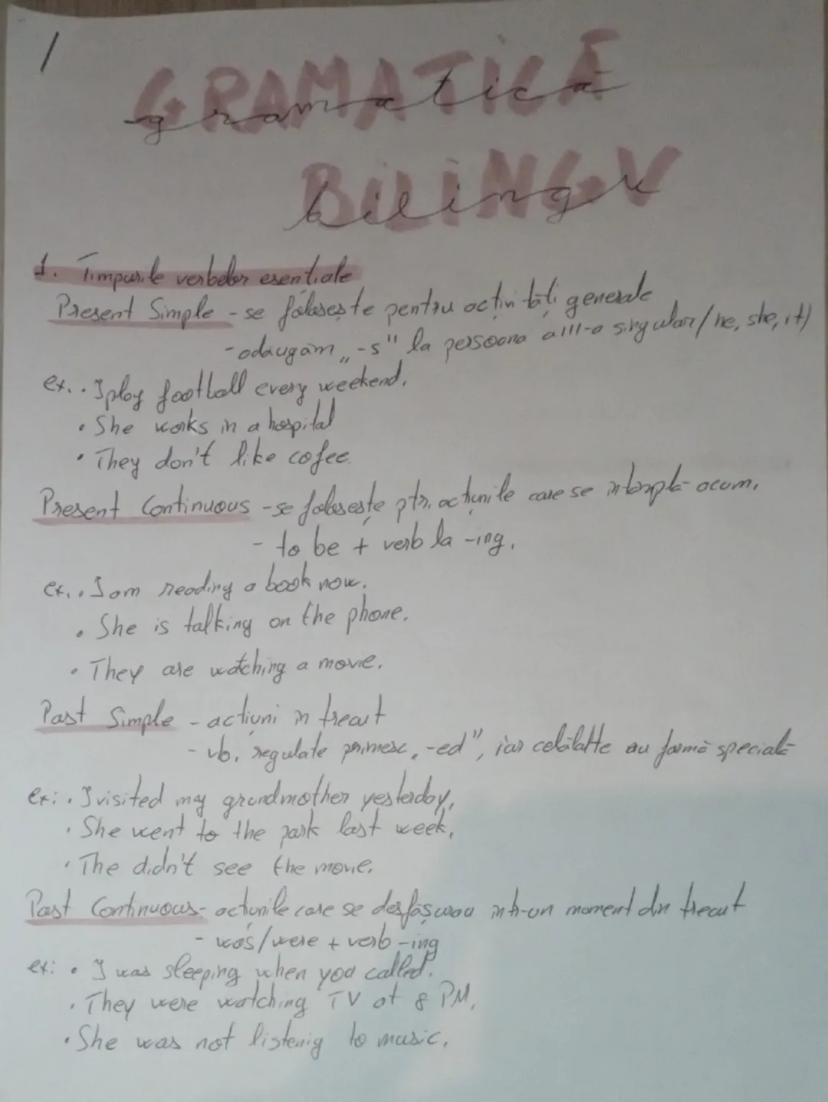 1
GRAMATICĂ
gramatică
BILINGV
bilingv
1. Timpurile verbelor esentiale
Present Simple - se folosește pentru activități generale
- adaugăm „-s" la persoana a III-a singular (he, she, it)
ex. . I play football every weekend.
• She works in a hospital
• They don't like cofee.
Present Continuous - se folosește ptr. acțiunile care se întâmplă acum.
- to be + verb la -ing.
ex. . I am reading a book now.
• She is talking on the phone.
• They are watching a movie.
Past Simple - acțiuni în trecut
- vb. regulate primesc „-ed", iar celălalte au formă specială
ex: . I visited my grandmother yesterday,
• She went to the park last week,
• The didn't see the movie.
Past Continuous - acțiunile care se desfășurau intr-un moment din trecut
- was/were + verb -ing
ex: • I was sleeping when you called.
• They were watching TV at 8 PM.
• She was not listenig to music.